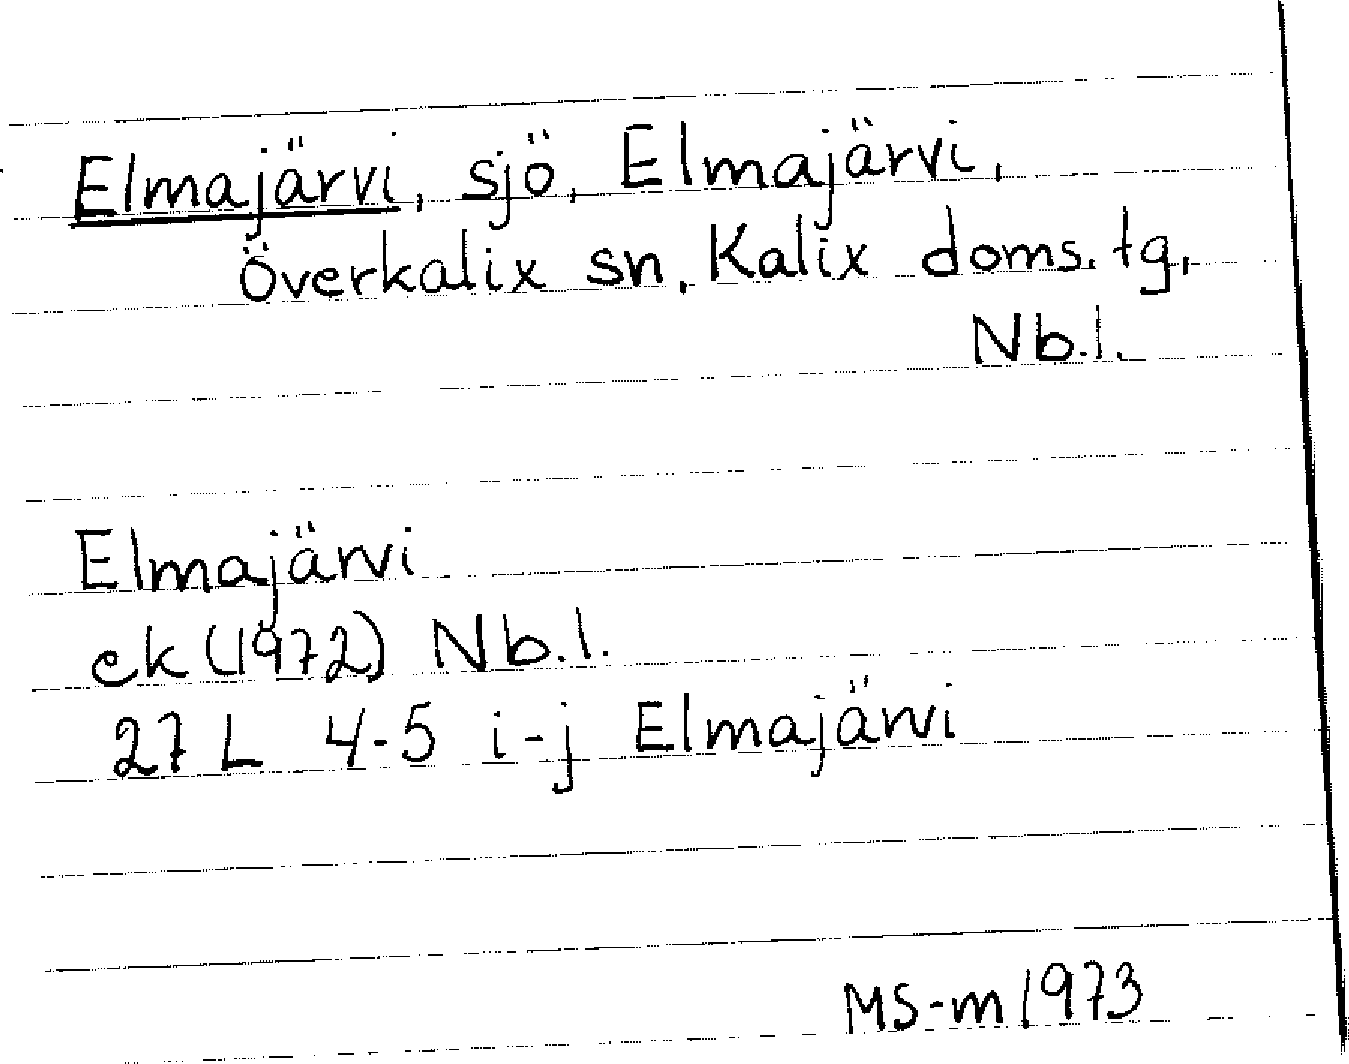 Elmajärvi, sjö, Elmajärvi,
Överkalix sn, Kalix doms.tg,
Nb.l.
Elmajärvi
ek (1972) Nb.l.
27 L 4-5 i-j Elmajärvi
MS-m 1973